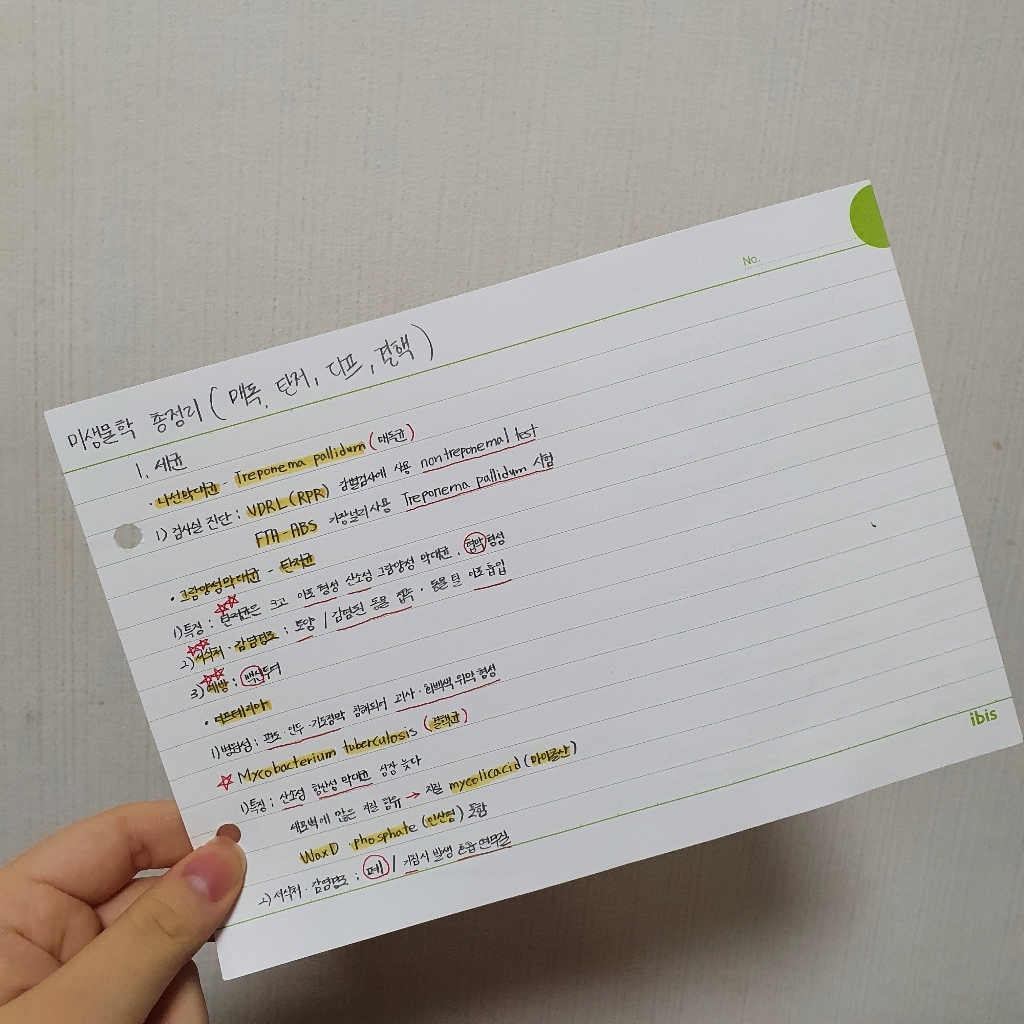 No.
미생물학 총정리 (매독, 탄저, 디프, 결핵)
1. 세균
· 나선막대균 - Treponema pallidum (매독균)
1) 검사실 진단 : VDRL (RPR) 감별검사에 사용 nontreponemal test
FTA-ABS 가장널리사용 Treponema pallidum 시험
· 그람양성막대균 - 탄저균
1) 특징 : 탄저균은 크고 아포 형성 산소성 그람양성 막대균, 협막형성
2) 서식처·감염경로 : 토양 / 감염된 동물 접촉·동물 털 아포 흡입
3) 예방 : 백신투여
· 디프테리아
1) 병원성 : 편도·인두·기도점막 침해되어 괴사·회백색 위막 형성
☆ Mycobacterium tuberculosis (결핵균)
1) 특징 : 산소성 항산성 막대균 성장 늦다
세포벽에 많은 지질 함유 → 지질 mycolicacid (마이콜산)
WaxD · phosphate (인산염) 포함
2) 서식처·감염경로 : 폐 / 기침시 발생 호흡 연무질
ibis